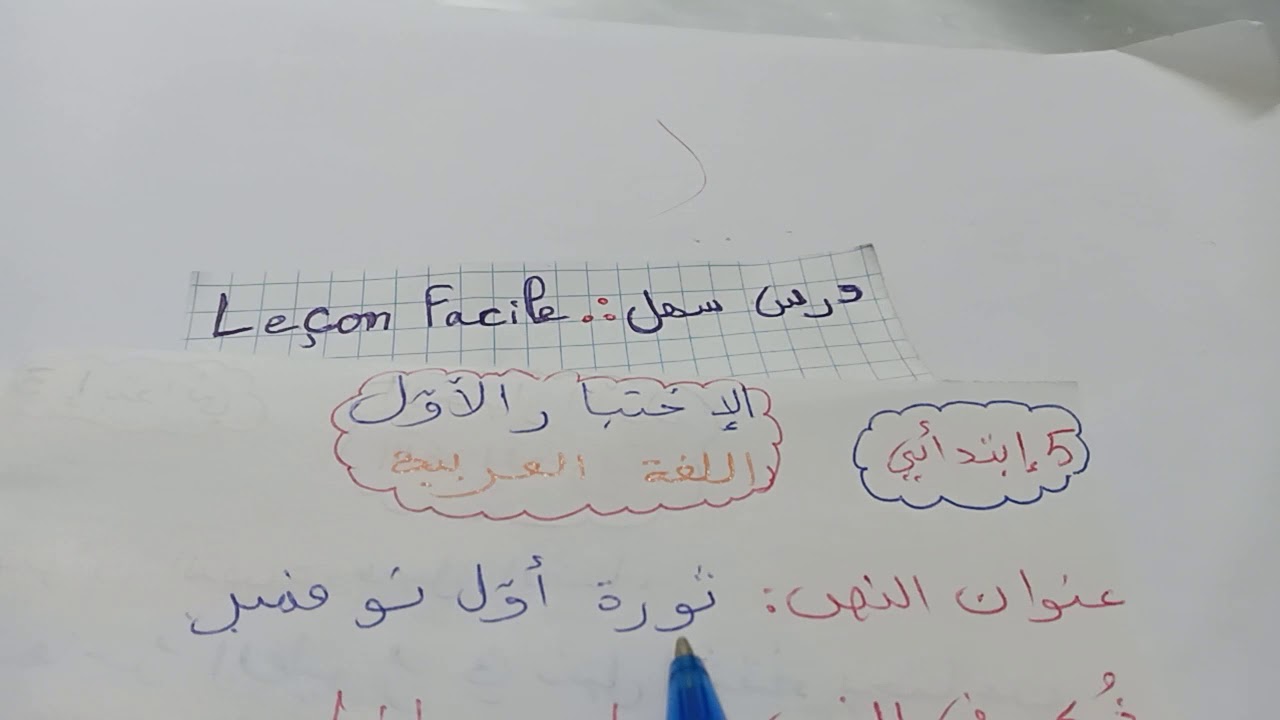 درس سهل :: Leçon Facile
الإختبار الأوّل
اللغة العربية
5 إبتدائي
عنوان النص: ثورة أوّل نوفمبر